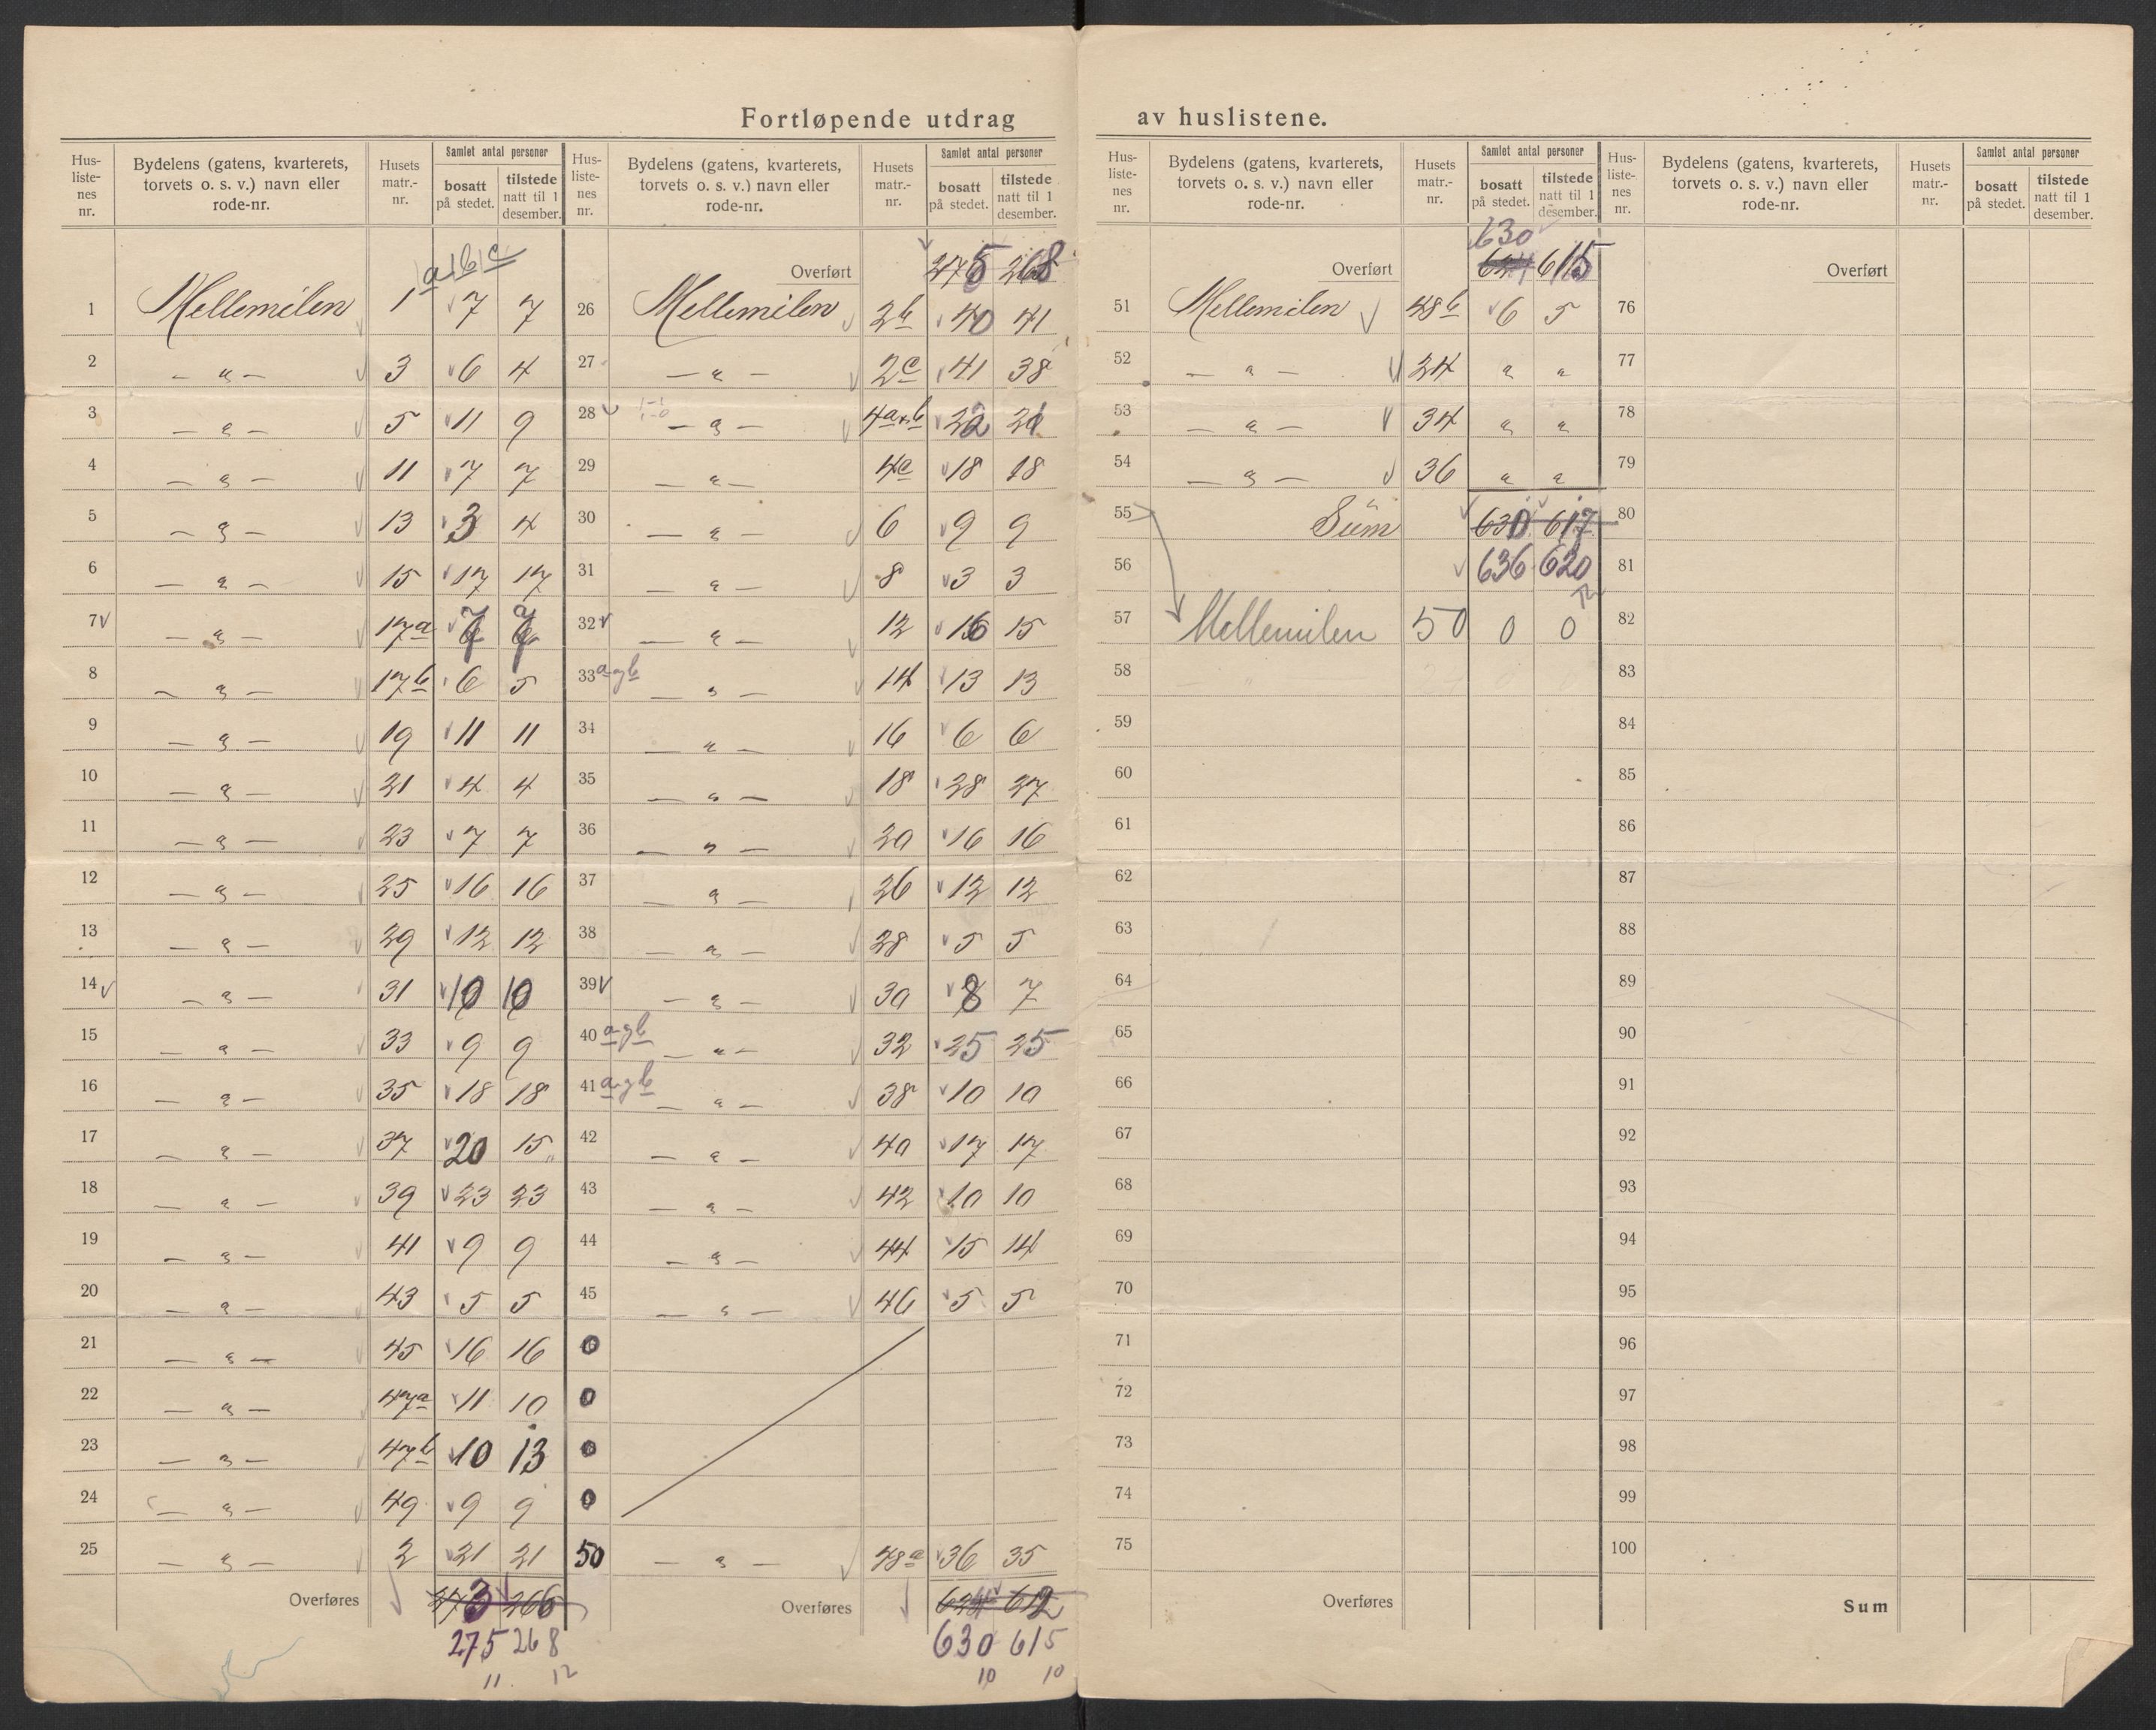 Fortløpende utdrag av huslistene.
Hus-listenes nr. Bydelens (gatens, kvarterets, torvets o. s. v.) navn eller rode-nr. Husets matr.-nr. Samlet antal personer bosatt på stedet. tilstede natt til 1 desember.
a b c
1 Mellemilen 1 7 7
2 — " — 3 6 4
3 — " — 5 11 9
4 — " — 11 7 7
5 — " — 13 3 4
6 — " — 15 17 17
7 — " — 17a 7 7
8 — " — 17b 6 5
9 — " — 19 11 11
10 — " — 21 4 4
11 — " — 23 7 7
12 — " — 25 16 16
13 — " — 29 12 12
14 — " — 31 10 10
15 — " — 33 9 9
16 — " — 35 18 18
17 — " — 37 20 15
18 — " — 39 23 23
19 — " — 41 9 9
20 — " — 43 5 5
21 — " — 45 16 16
22 — " — 47a 11 10
23 — " — 47b 10 13
24 — " — 49 9 9
25 — " — 2 21 21
Overføres 273 266
275 268
11 12
Hus-listenes nr. Bydelens (gatens, kvarterets, torvets o. s. v.) navn eller rode-nr. Husets matr.-nr. Samlet antal personer bosatt på stedet. tilstede natt til 1 desember.
Overført 275 268
26 Mellemilen 2b 40 41
27 — " — 2c 41 38
28 — " — 4a+b 22 21
29 — " — 4c 18 18
30 — " — 6 9 9
31 — " — 8 3 3
32 — " — 12 16 15
33 a og b — " — 14 13 13
34 — " — 16 6 6
35 — " — 18 28 27
36 — " — 20 16 16
37 — " — 26 12 12
38 — " — 28 5 5
39 — " — 30 8 7
40 a og b — " — 32 25 25
41 a og b — " — 38 10 10
42 — " — 40 17 17
43 — " — 42 10 10
44 — " — 44 15 14
45 — " — 46 5 5
0
0
0
0
50 — " — 48a 36 35
Overføres 624 612
630 615
10 10
Hus-listenes nr. Bydelens (gatens, kvarterets, torvets o. s. v.) navn eller rode-nr. Husets matr.-nr. Samlet antal personer bosatt på stedet. tilstede natt til 1 desember.
630
Overført 624 615
51 Mellemilen 48b 6 5
52 — " — 24 " "
53 — " — 34 " "
54 — " — 36 " "
55 Sum 630 617
56 636 620
57 Mellemilen 50 0 0
58
59
60
61
62
63
64
65
66
67
68
69
70
71
72
73
74
75
Overføres
Hus-listenes nr. Bydelens (gatens, kvarterets, torvets o. s. v.) navn eller rode-nr. Husets matr.-nr. Samlet antal personer bosatt på stedet. tilstede natt til 1 desember.
Overført
76
77
78
79
80
81
82
83
84
85
86
87
88
89
90
91
92
93
94
95
96
97
98
99
100
Sum